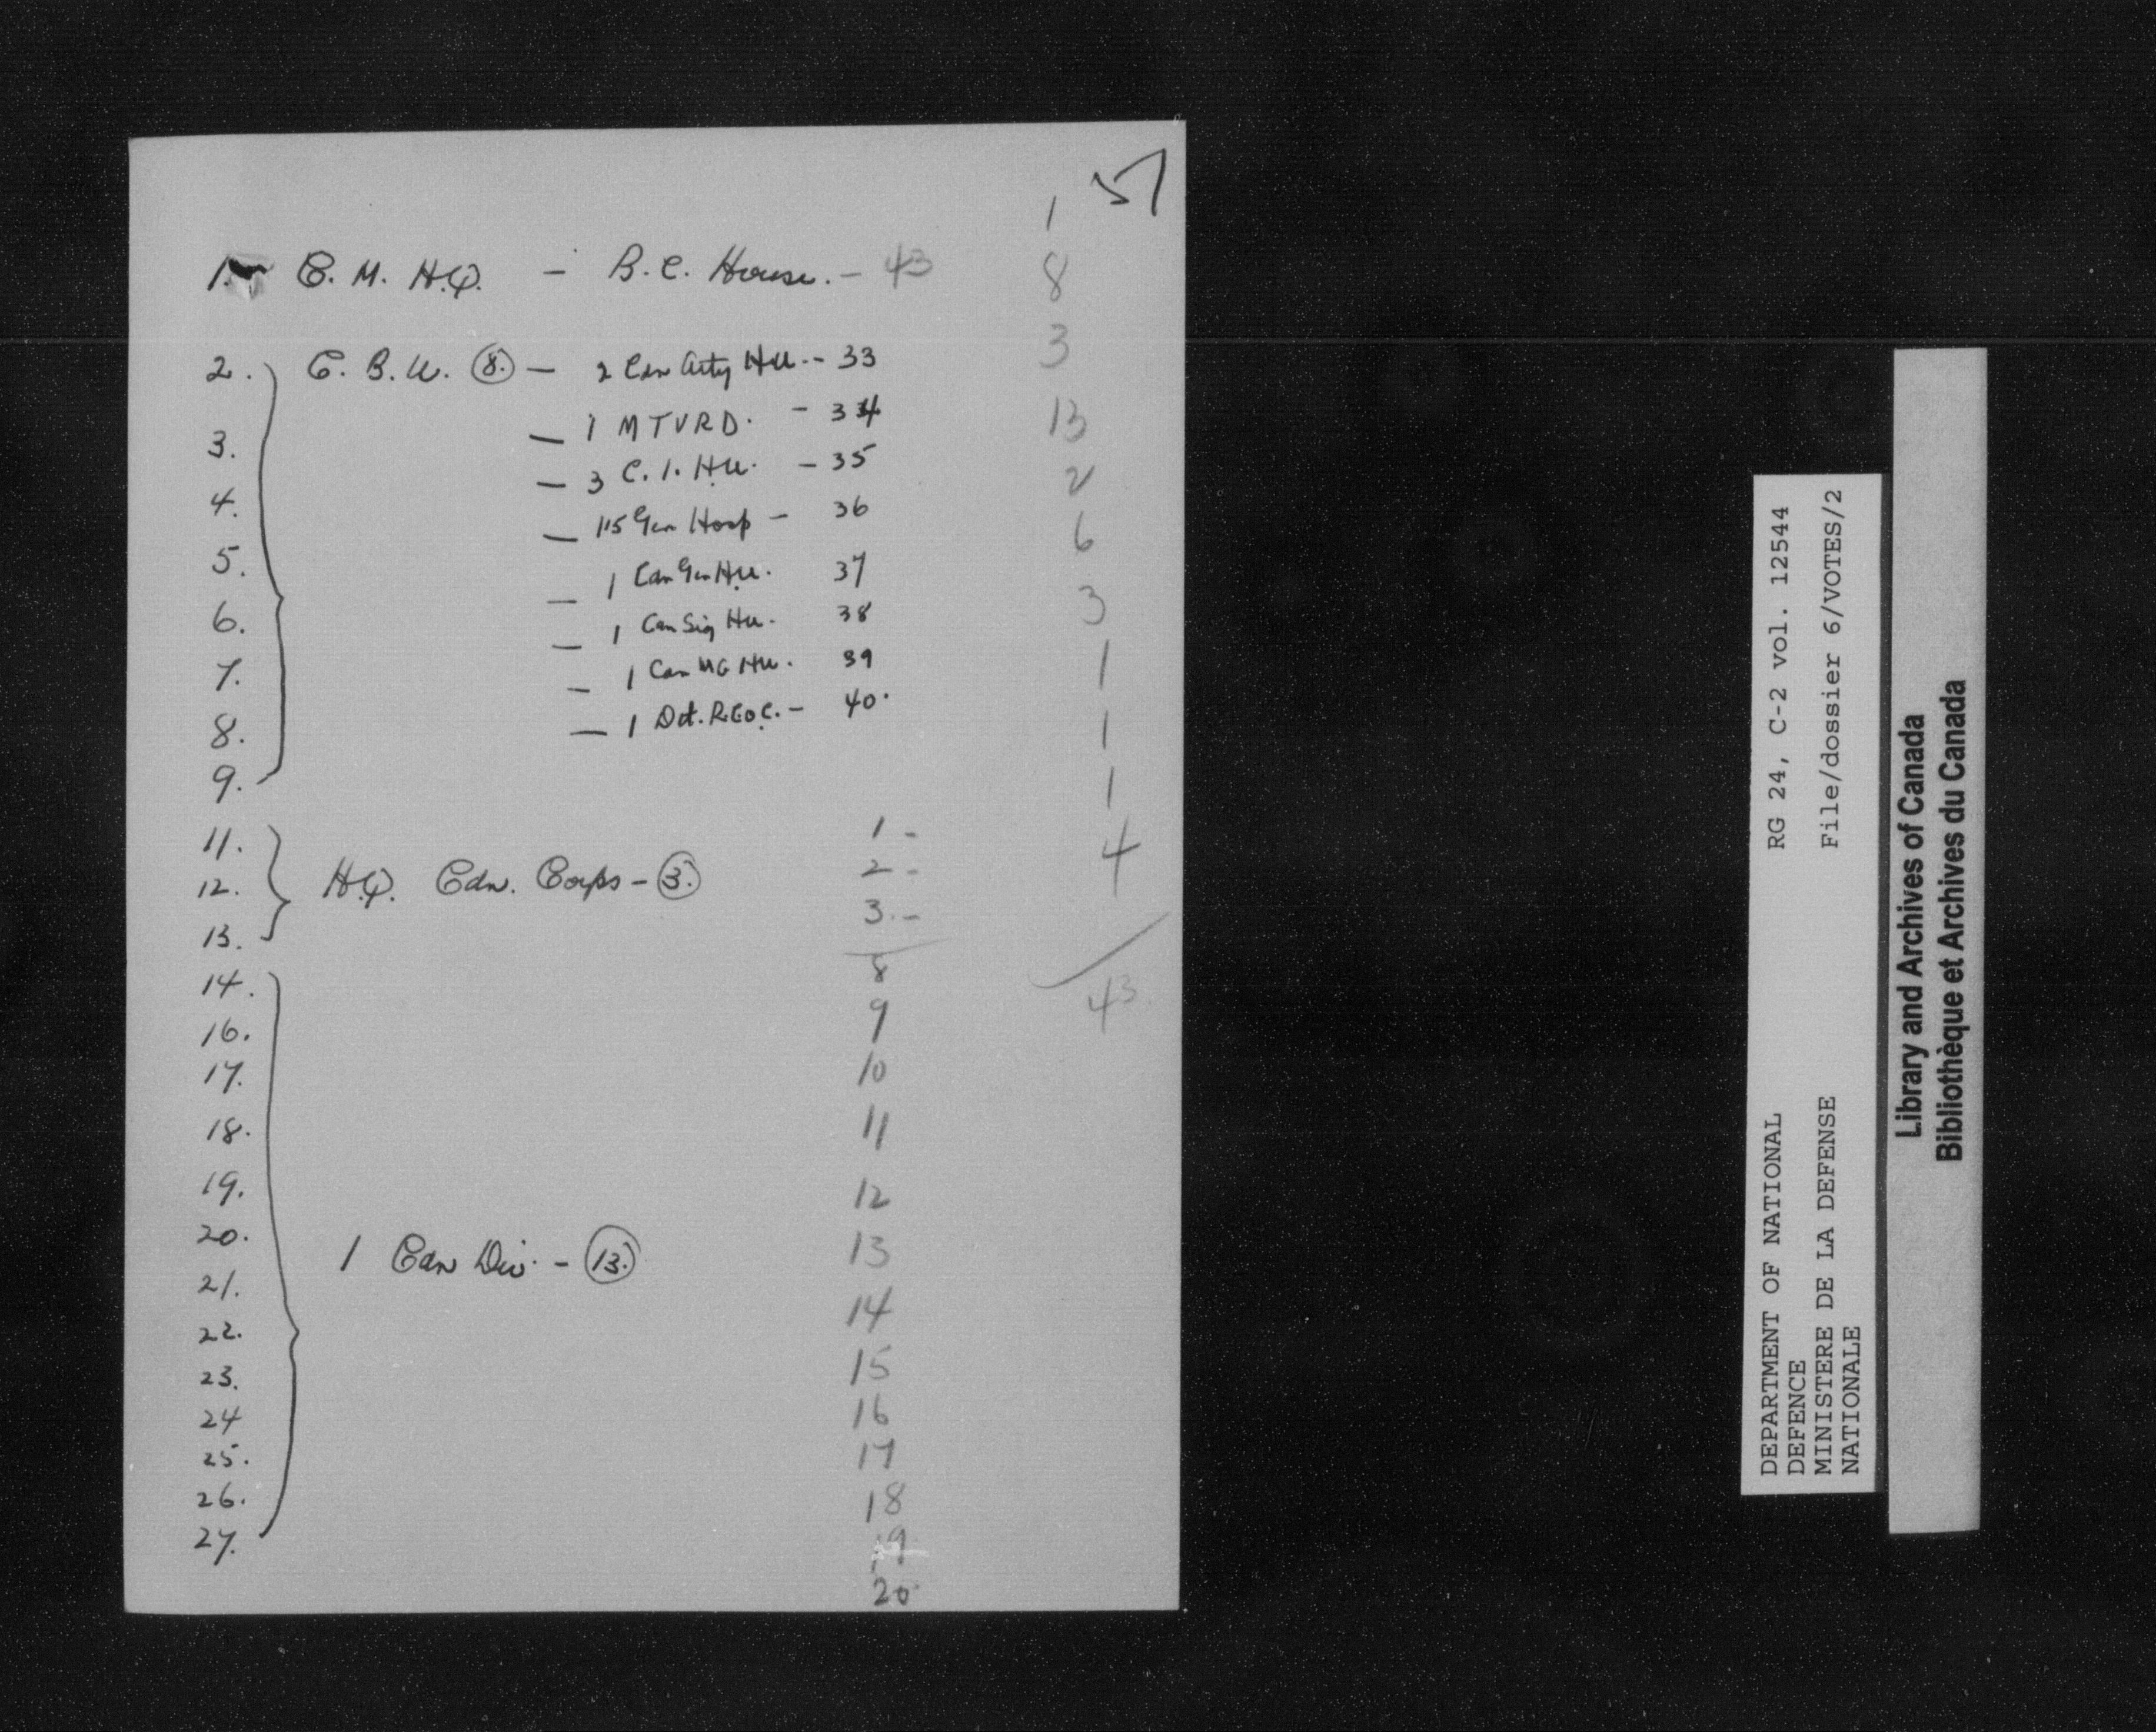 57
1. C. M. H.Q. - B.C. House. - 43
2. C. B. U. (8.) - 2 Cdn Arty H.U. - 33
3. - 1 M T V R D. - 34
4. - 3 C. I. H.U. - 35
5. - 15 Gen Hosp - 36
6. - 1 Cdn Gen H.U. 37
7. - 1 Can Sig H.U. 38
8. - 1 Can MG H.U. 39
9. - 1 Det. - 40.
11. 1 -
12. H.Q. Cdn. Corps - (3.) 2 -
13. 3. -
14. 8
16. 9
17. 10
18. 11
19. 12
20. 1 Cdn Div. - (13.) 13
21. 14
22. 15
23. 16
24 17
25. 18
26. 19
27. 20
1
8
3
13
2
6
3
1
1
1
4
43
DEPARTMENT OF NATIONAL
DEFENCE
MINISTERE DE LA DEFENSE
NATIONALE
RG 24, C-2 vol. 12544
File/dossier 6/VOTES/2
Library and Archives of Canada
Bibliothèque et Archives du Canada